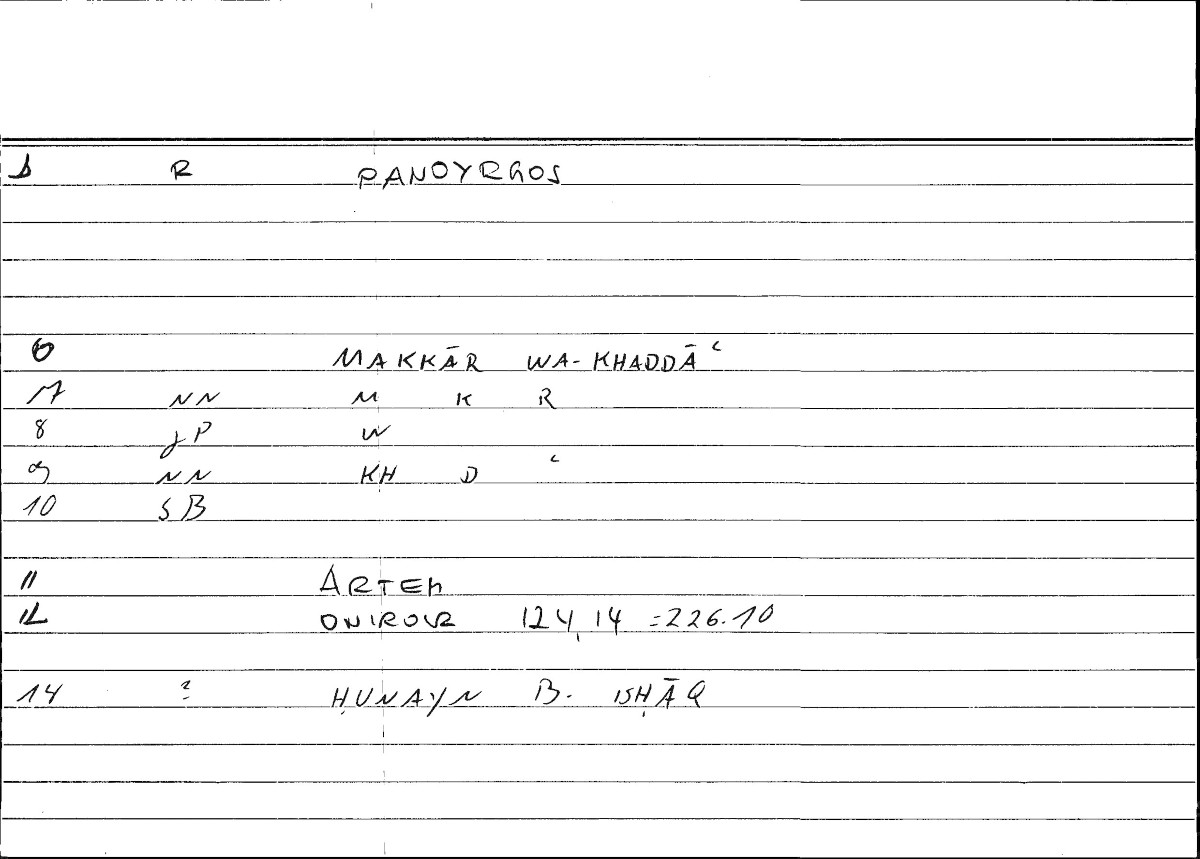 1 R PANOYRGOS
6 MAKKĀR WA-KHADDĀʿ
7 NN M K R
8 JP W
9 NN KH D ʿ
10 SB
11 ARTEM
12 ONIROCR 124,14 =226.10
14 ? ḤUNAYN B. ISḤĀQ